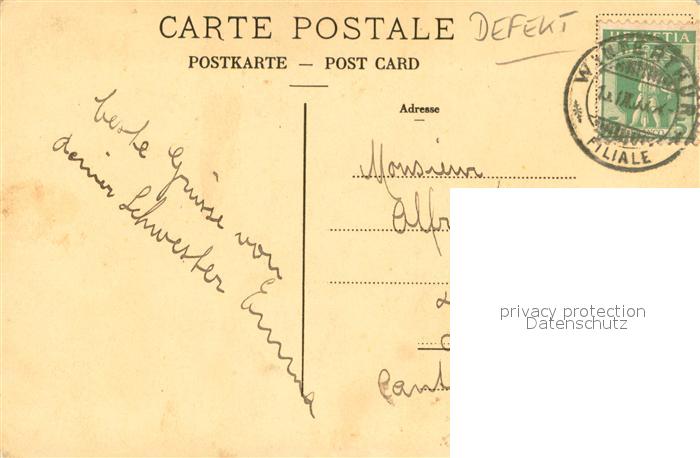 CARTE POSTALE
DEFEKT
POSTKARTE — POST CARD
HELVETIA
WINTERTHUR
FILIALE
Adresse
beste Grüsse von
deiner Schwester Emma
Monsieur
Alfr
Cant
privacy protection
Datenschutz